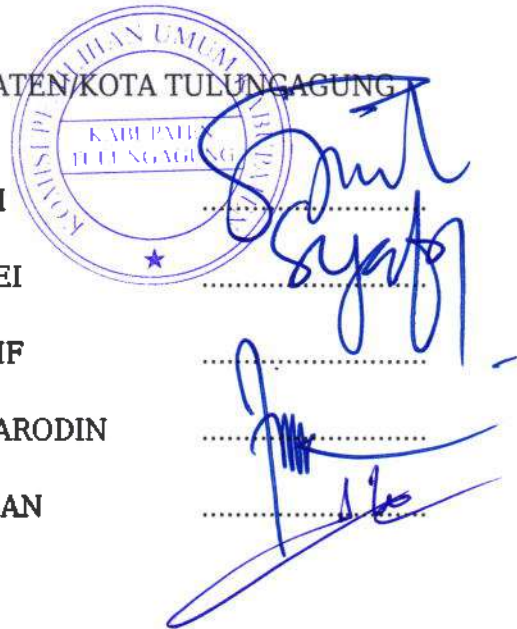 ATEN/KOTA TULUNGAGUNG
KOMISI PEMILIHAN UMUM
KABUPATEN
TULUNGAGUNG
I ..............................
EI ..............................
IF ..............................
ARODIN ..............................
AN ..............................